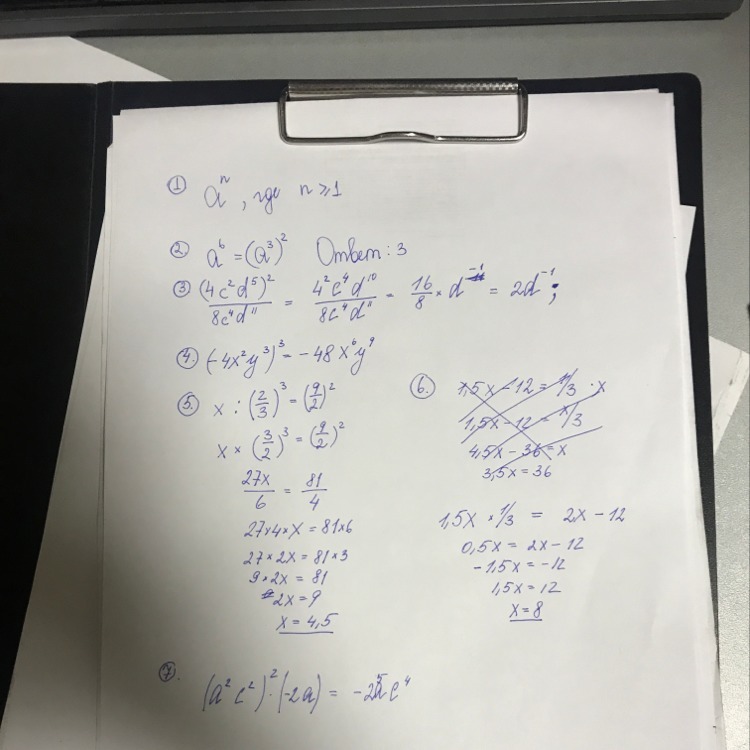 ① aⁿ, где n ⩾ 1
② a⁶ = (a³)² Ответ: 3
③ (4c²d⁵)² / 8c⁴d¹¹ = 4²c⁴d¹⁰ / 8c⁴d¹¹ = 16/8 × d⁻¹ = 2d⁻¹;
④. (-4x²y³)³ = -48x⁶y⁹
⑤. x : (2/3)³ = (9/2)²
x × (3/2)³ = (9/2)²
27x/6 = 81/4
27×4×x = 81×6
27×2x = 81×3
9×2x = 81
2x = 9
x = 4,5
⑥. 1,5x - 12 = 1/3 · x
1,5x - 12 = x/3
4,5x - 36 = x
3,5x = 36
1,5x × 1/3 = 2x - 12
0,5x = 2x - 12
-1,5x = -12
1,5x = 12
x = 8
⑦. (a²c²)² · (-2a) = -2a⁵c⁴